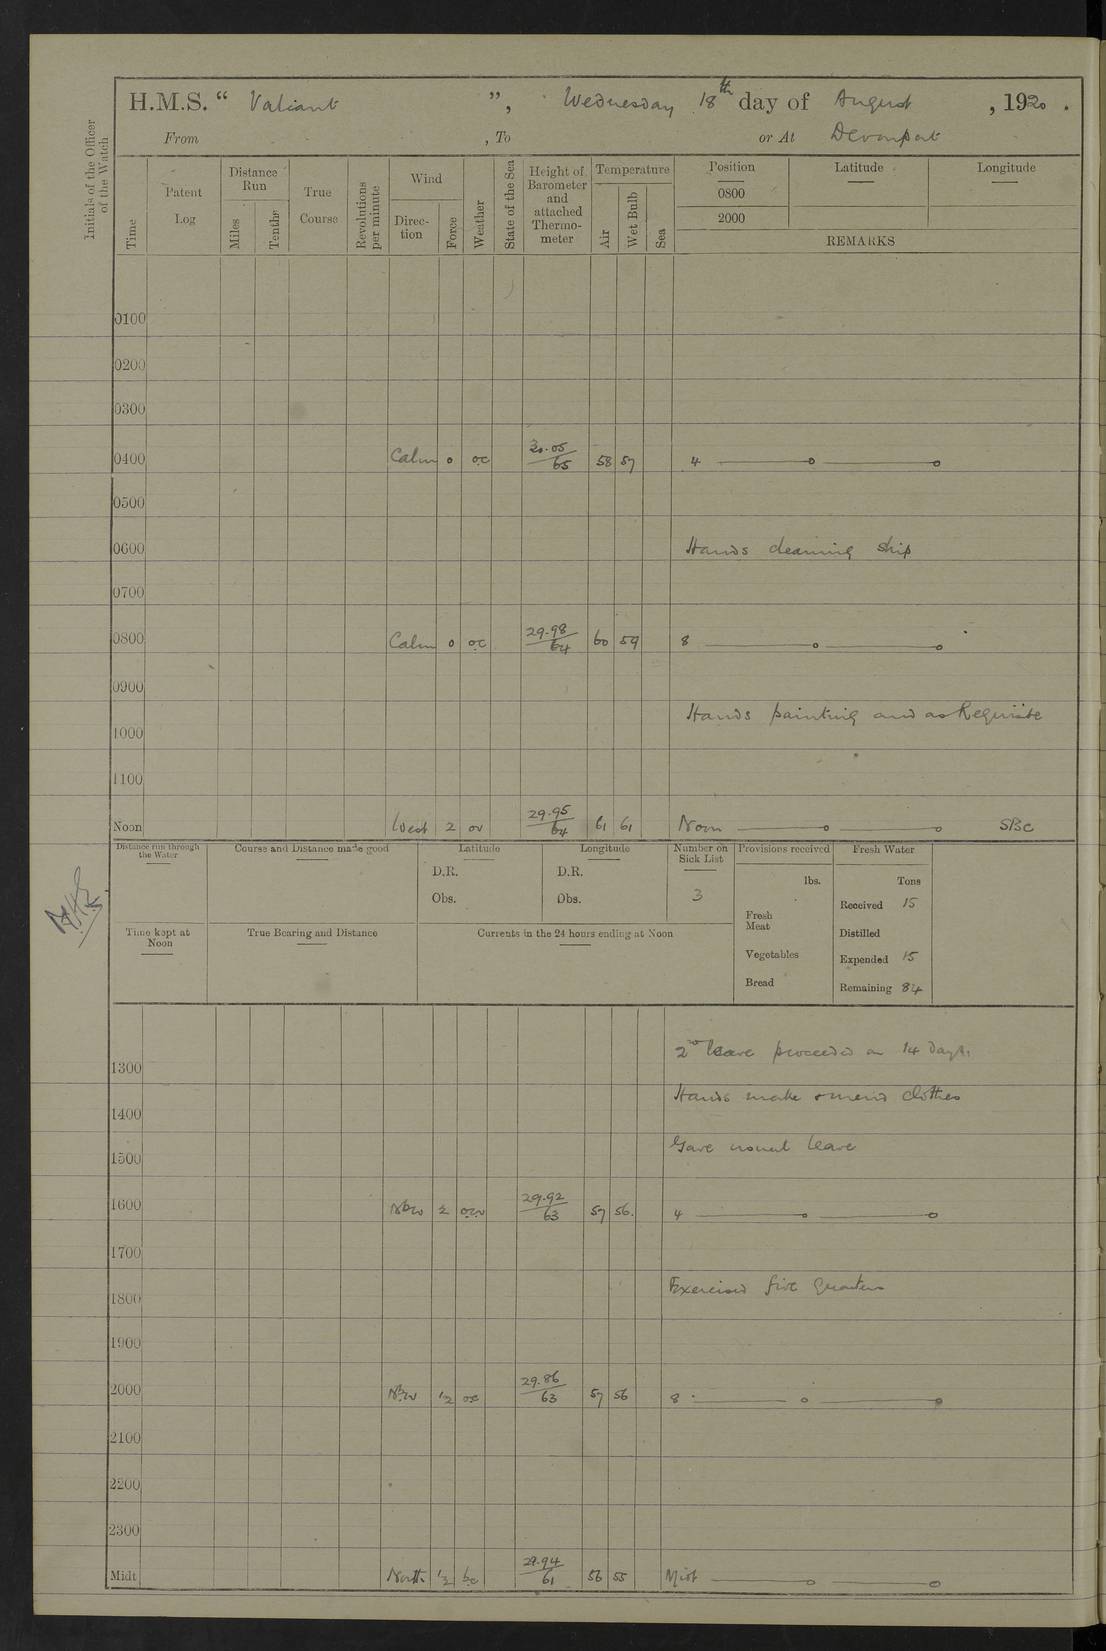 H.M.S. “ Valiant ”, Wednesday 18th day of August , 1920 .
From , To or At Devonport
Initials of the Officer of the Watch
Time
Patent Log
Distance Run
Miles
Tenths
True Course
Revolutions per minute
Wind
Direc-tion
Force
Weather
State of the Sea
Height of Barometer and attached Thermo-meter
Temperature
Air
Wet Bulb
Sea
Position Latitude Longitude
0800
2000
REMARKS
0100
0200
0300
0400 Calm 0 oc 30.05/65 58 57 4
0500
0600 Hands cleaning ship
0700
0800 Calm 0 oc 29.98/64 60 59 8
0900
Hands painting and as Requisite
1000
1100
Noon West 2 ov 29.95/64 61 61 Noon SBC
Distance run through the Water
Course and Distance made good
Latitude
D.R.
Obs.
Longitude
D.R.
Obs.
Number on Sick List
3
Provisions received
lbs.
Fresh Meat
Vegetables
Bread
Fresh Water
Tons
Received 15
Distilled
Expended 15
Remaining 84
Time kept at Noon
True Bearing and Distance
Currents in the 24 hours ending at Noon
2nd leave proceeded on 14 days.
1300
Hands make & mend clothes
1400
Gave usual leave
1500
1600 NbW 2 29.92/63 57 56. 4
1700
Exercised fire quarters
1800
1900
2000 NbW 1/2 oc 29.86/63 57 56 8
2100
2200
2300
Midt North 1/2 bc 29.94/61 56 55 Midt